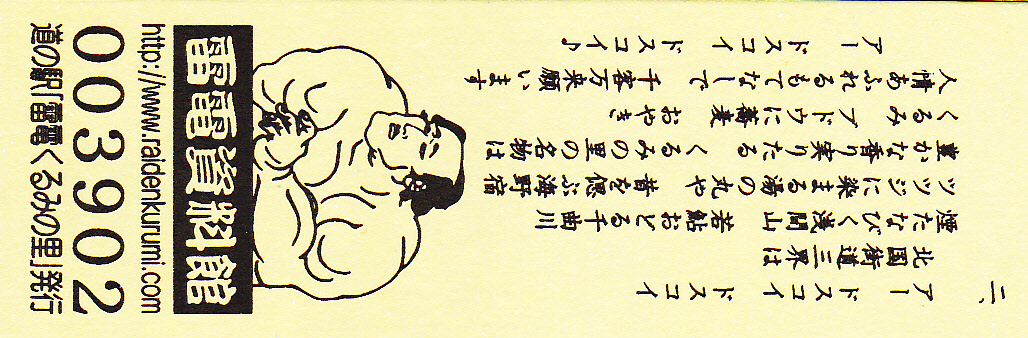 二、
アー ドスコイ ドスコイ
北国街道三界は
煙たなびく浅間山 若鮎おどる千曲川
ツツジに染まる湯の丸や 昔を偲ぶ海野宿
豊かな香り実りたる くるみの里の名物は
くるみ ブドウに蕎麦 おやき
人情あふれるもてなしで 千客万来願います
アー ドスコイ ドスコイ♪
雷電資料館
http://www.raidenkurumi.com
003902
道の駅「雷電くるみの里」発行